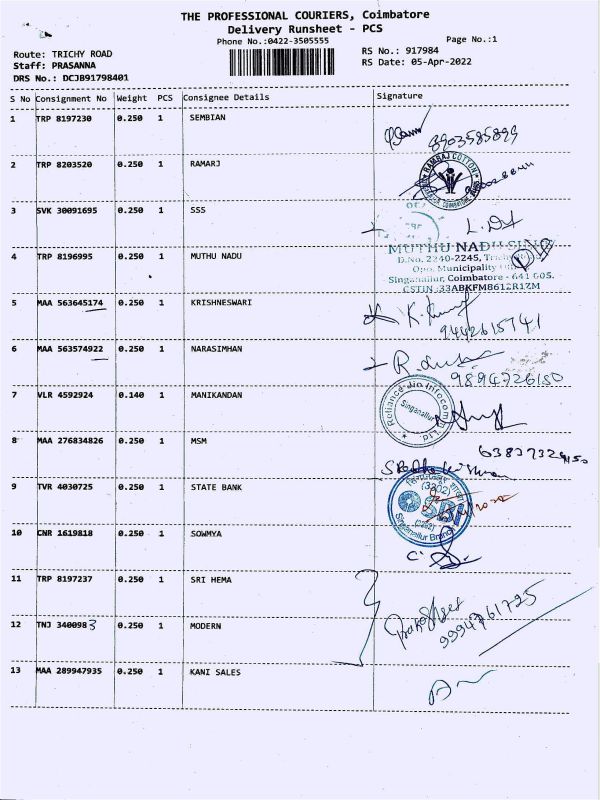 THE PROFESSIONAL COURIERS, Coimbatore
Delivery Runsheet - PCS
Phone No.:0422-3505555
Page No.:1
Route: TRICHY ROAD
RS No.: 917984
Staff: PRASANNA
RS Date: 05-Apr-2022
DRS No.: DCJB91798401
S No Consignment No Weight PCS Consignee Details Signature
1 TRP 8197230 0.250 1 SEMBIAN
8903585899
2 TRP 8203520 0.250 1 RAMARJ
RAMRAJ COTTON
3 SVK 30091695 0.250 1 SSS
4 TRP 8196995 0.250 1 MUTHU NADU
MUTHU NADU
D.No. 2240-2245,
Opp. Municipality
Singanallur, Coimbatore - 641 005.
GSTIN :33ABKFM8612R1ZM
5 MAA 563645174 0.250 1 KRISHNESWARI
9442615741
6 MAA 563574922 0.250 1 NARASIMHAN
9894726150
7 VLR 4592924 0.140 1 MANIKANDAN
Reliance Jio Infocomm Ltd.
Singanallur
8 MAA 276834826 0.250 1 MSM
9 TVR 4030725 0.250 1 STATE BANK
(3202)
SBI
(3202)
Singanallur Branch
10 CNR 1619818 0.250 1 SOWMYA
11 TRP 8197237 0.250 1 SRI HEMA
12 TNJ 3400983 0.250 1 MODERN
9994761725
13 MAA 289947935 0.250 1 KANI SALES